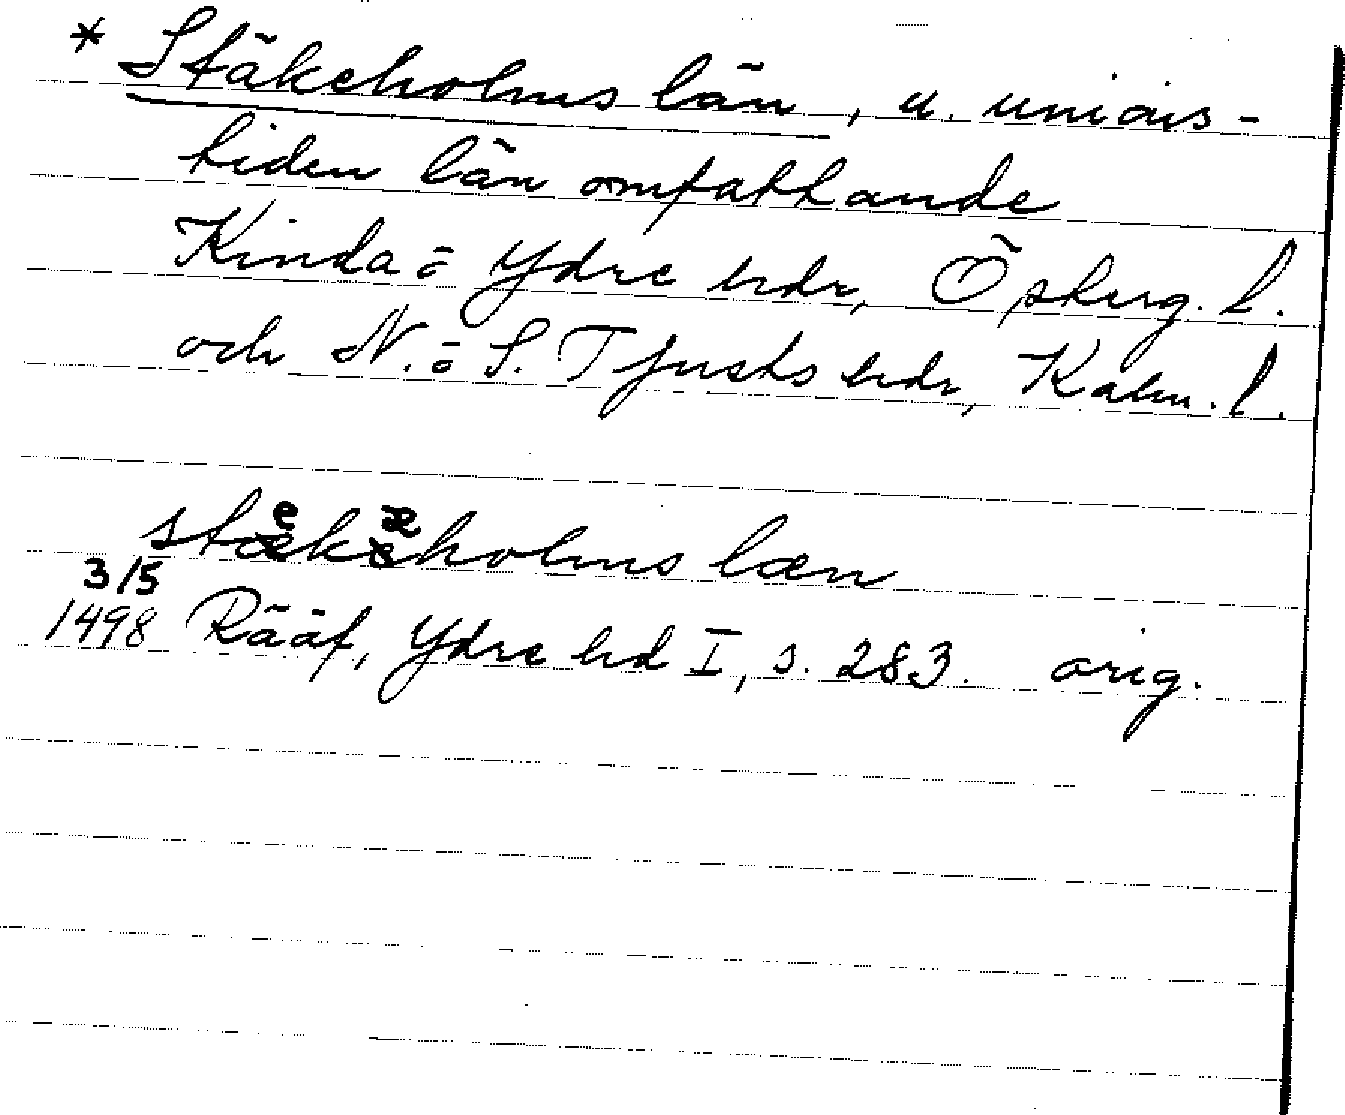 * Stäkeholms län, u. unions-
tiden län omfattande
Kinda o Ydre hrdr, Österg. l.
och N. o S. Tjusts hrdr, Kalm. l.
stekæholms læn
3/5
1498 Rääf, Ydre hd I, s. 283. orig.